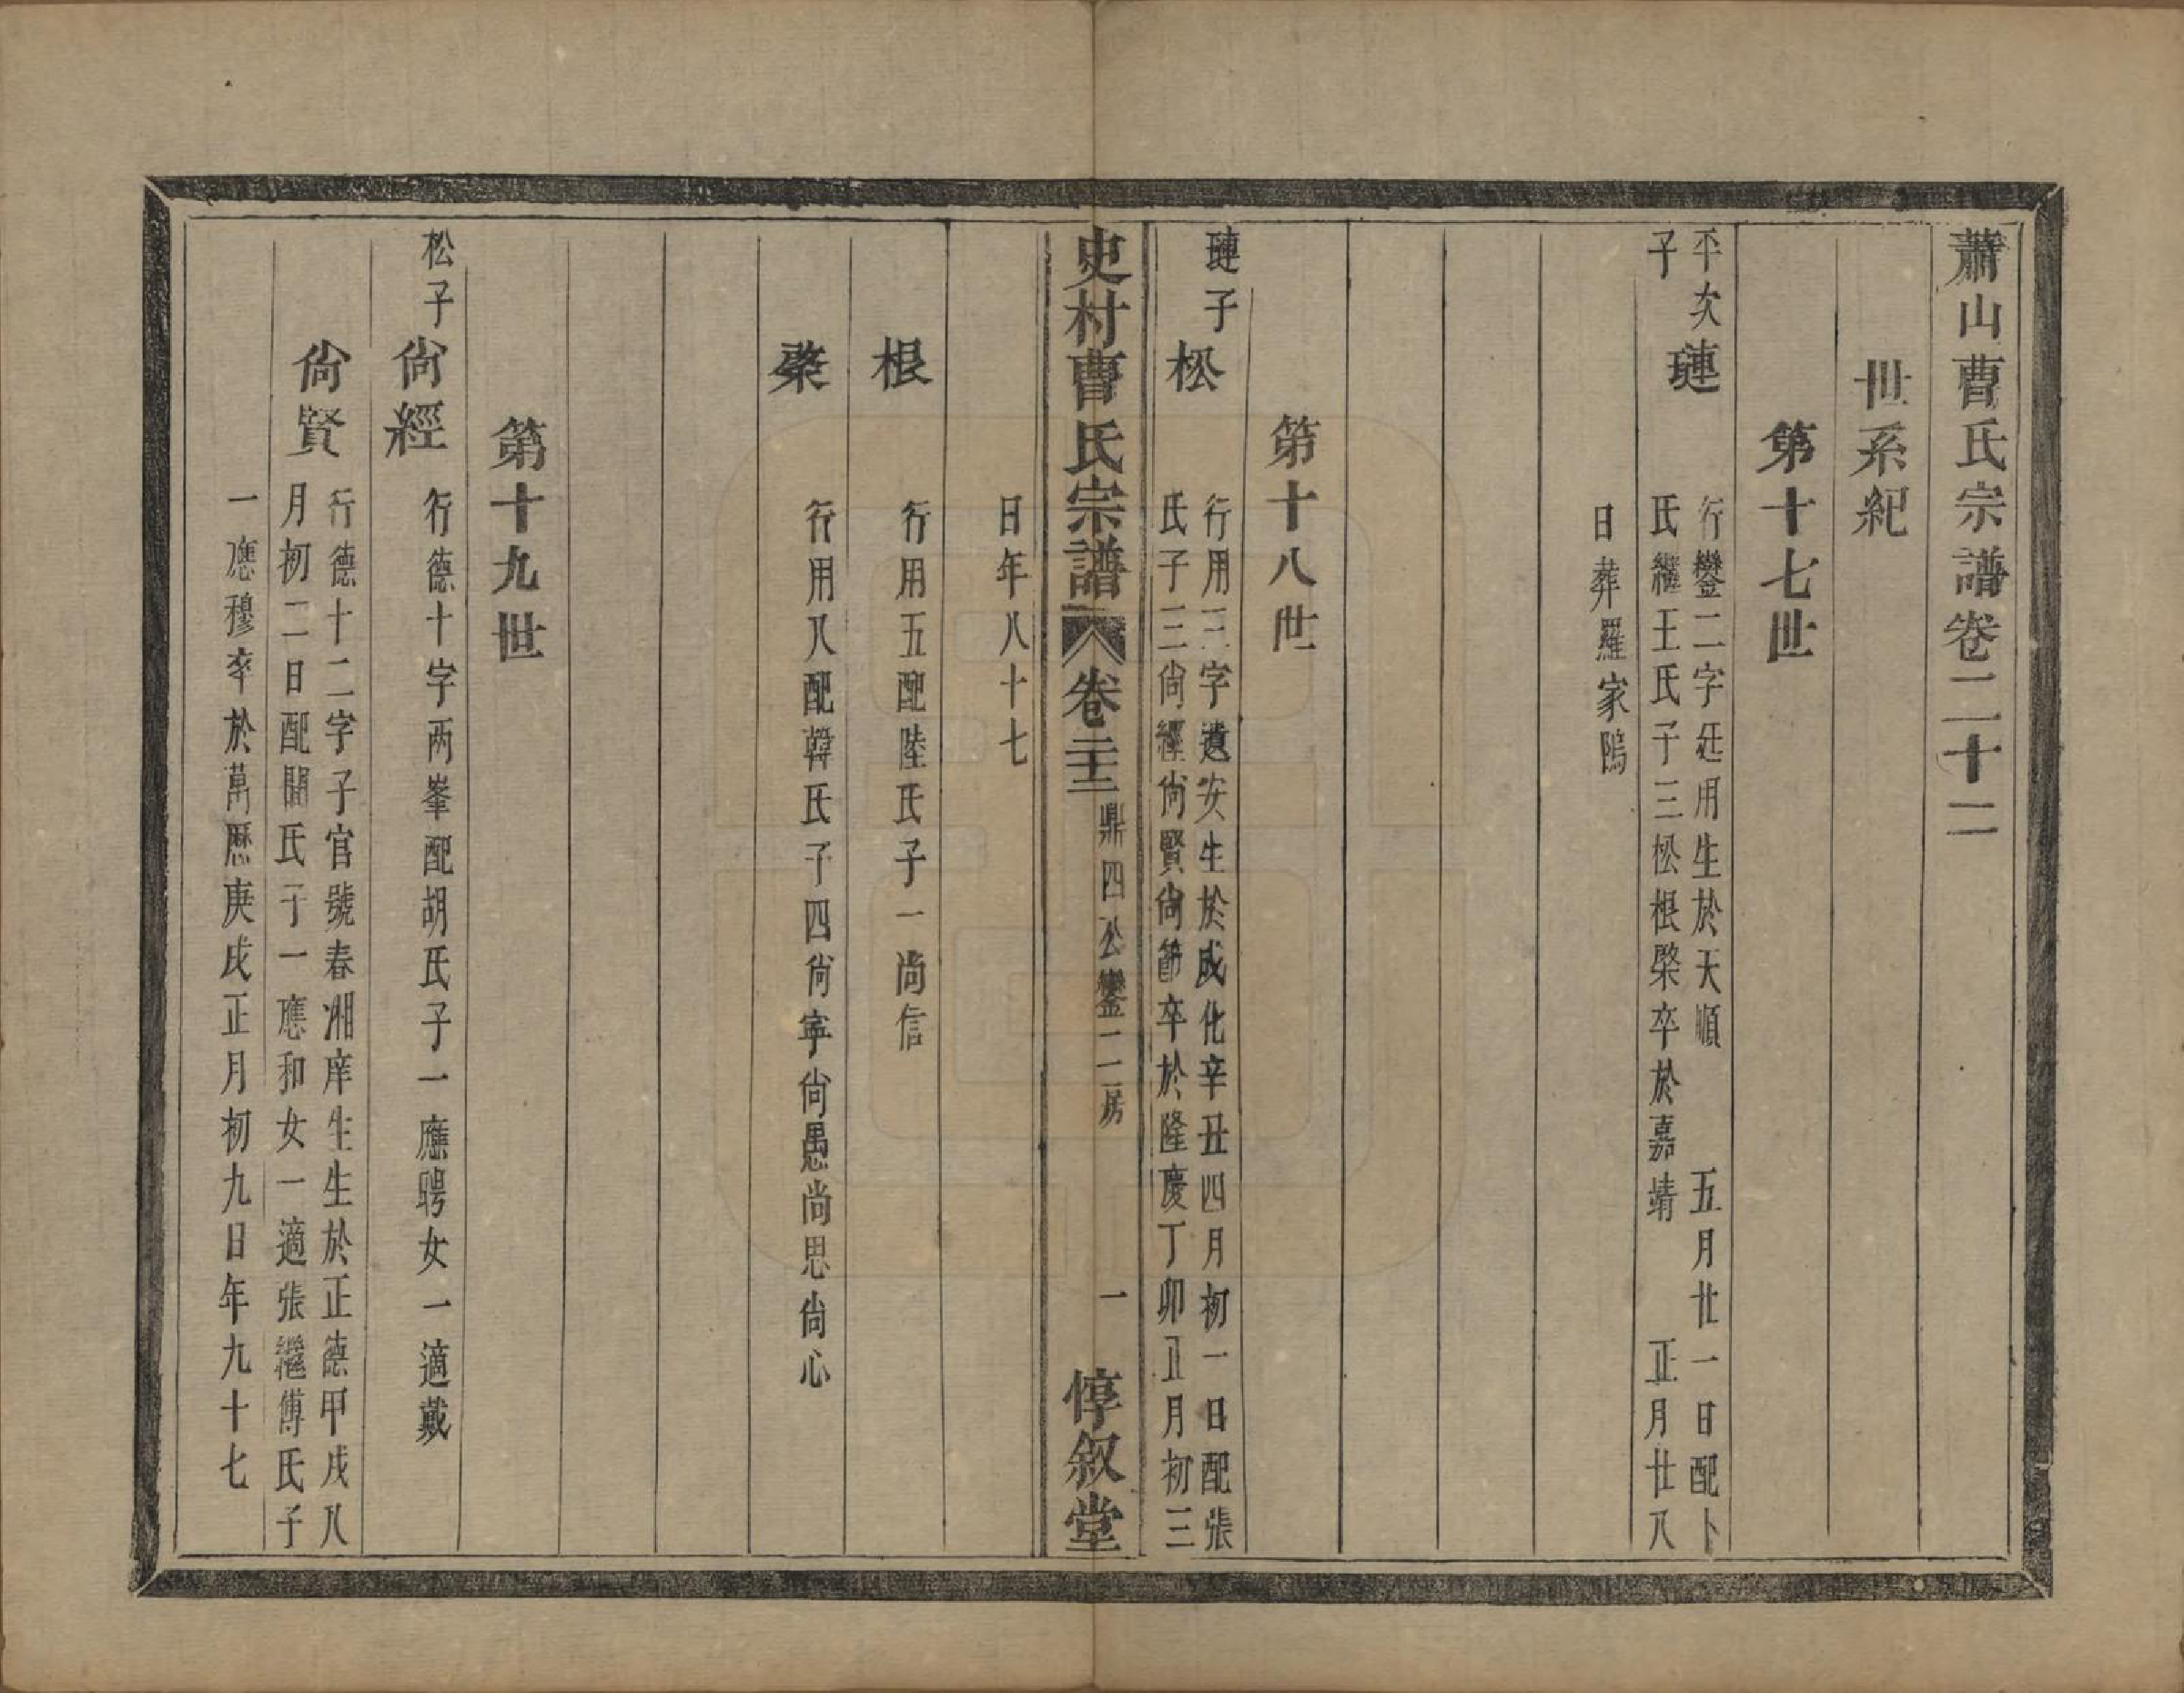 蕭山曹氏宗譜卷二十二
世系紀
第十七世
平次子
璉
行鑾二字廷用生於天順　　五月廿一日配卜
氏繼王氏子三松根棨卒於嘉靖　　正月廿八
日葬羅家隖
第十八世
璉子
松
行用三字遺安生於成化辛丑四月初一日配張
氏子三尙經尙賢尙節卒於隆慶丁卯正月初三
史村曹氏宗譜
卷二十二
鼎四公鑾二房
一
惇敘堂
日年八十七
根
行用五配陸氏子一尚信
棨
行用八配韓氏子四尙寧尙愚尚思尙心
第十九世
松子
尙經
行德十字两峯配胡氏子一應聘女一適戴
尙賢
行德十二字子官號春湘庠生生於正德甲戌八
月初二日配關氏子一應和女一適張繼傅氏子
一應穆卒於萬歷庚戌正月初九日年九十七